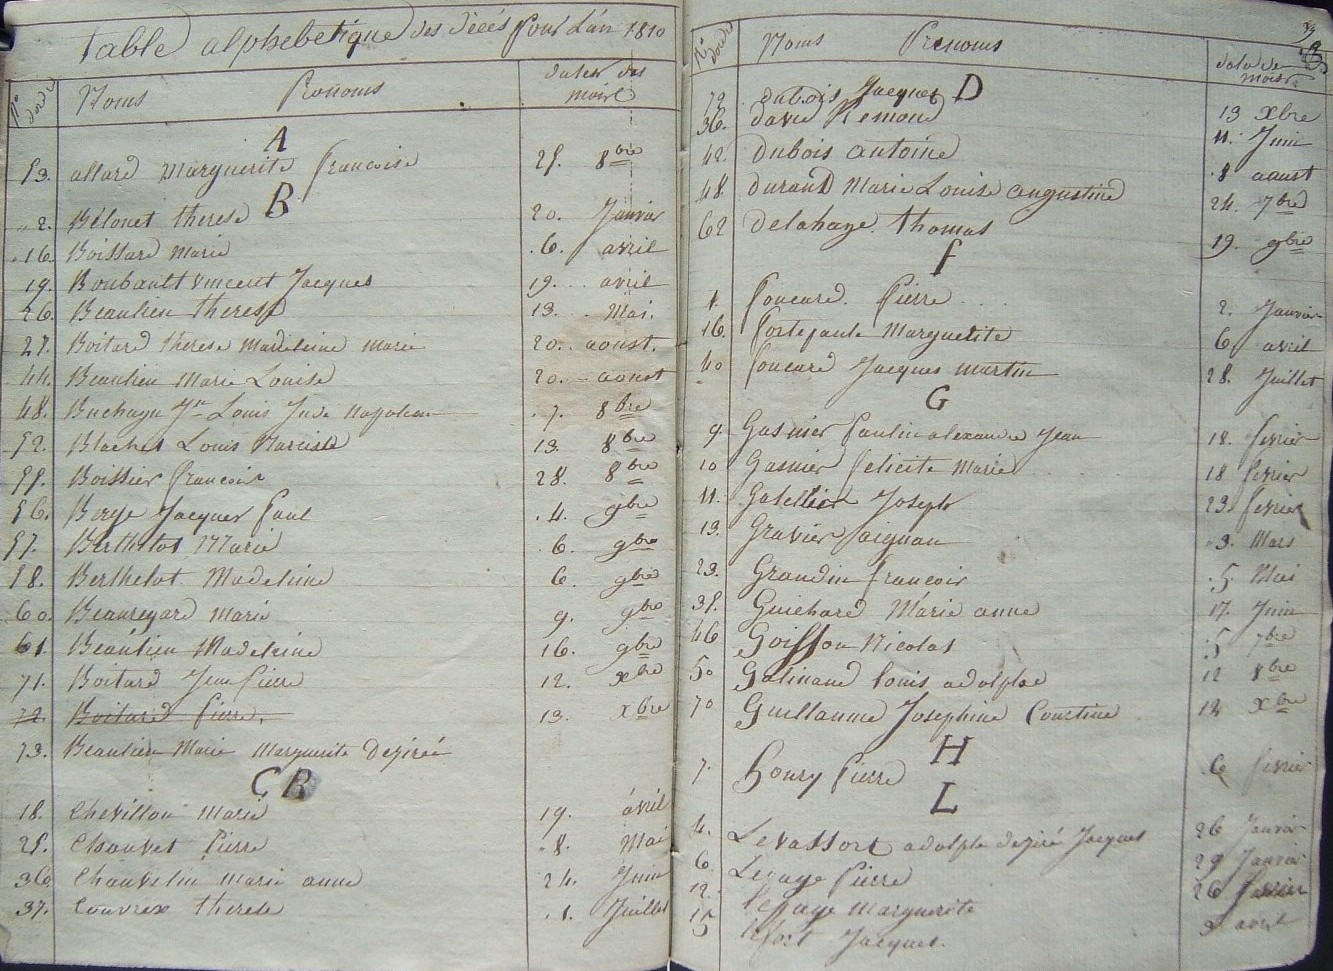 Table alphebetique des décés Pour L'an 1810
N° dordre Noms Prenoms dates des mois
A
53. allard Marguerite francoise 25. 8bre
B
2. Bélouet therese 20. Janvier
16. Boissard Marie 6. avril
19. Boubault vincent Jacques 19. avril
26. Beaulieu therese 13. Mai.
27. Boitard therese Madeleine Marie 20. aoust.
44. Beaulieu Marie Louise 20. aoust
48. Louis Jude Napoleon 7. 8bre
52. Blachet Louis Narcisse 13. 8bre
55. Boissier francois 28. 8bre
56. Berge Jacques Paul 4. 9bre
57. Berthelot Marie 6. 9bre
58. Berthelot Madeleine 6. 9bre
60. Beauregard Marie 9. 9bre
61. Beaulieu Madeleine 16. 9bre
71. Boitard Jean Pierre 12. xbre
72. Boitard Pierre. 13. xbre
73. Beaulieu Marie Marguerite Desirée
C B
18. Chevillon Marie 19. avril
25. Chauvet Pierre 8. Mai
36. Chauvelin Marie anne 24. Juin
37. Couvrex therese 1. Juillet
N° dordre Noms Prenoms date de mois
D
72. dubois Jacques 13 xbre
36. david Remond 11. Juin
42. dubois antoine 8 aoust
48. durand Marie Louise augustine 24. 7bre
62 delahaye thomas 19. 9bre
f
1. foucard. Pierre 2. Janvier
16. Marguerite 6 avril
40 foucard Jacques martin 28. Juillet
G
9. Gasnier Paulin alexandre Jean 18. fevrier
10 Gasnier felicite Marie 18 fevrier
11. Gatellier Joseph 23. fevrier
13. Gravier aignan 3. Mars
23. Grandin francois 5. Mai
35. Guichard Marie anne 17. Juin
46 Goisson Nicolas 5 7bre
50 Galinand louis adolphe 12 8bre
70 Guillaume Josephine Courtine 12 xbre
H
7. houry Pierre 6 fevrier
L
4. Levassort adolphe desiré Jacques 26 Janvier
6 Lepage Pierre 29 Janvier
12. lepage Marguerite 26 fevrier
15 lefort Jacques. 3 avril